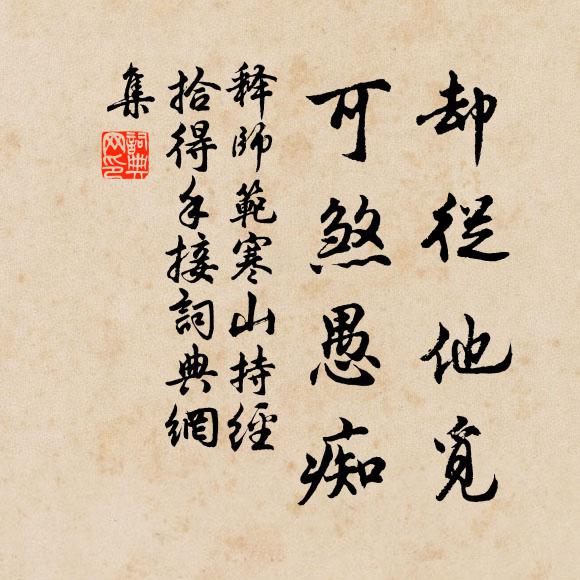 却從他覓
可煞愚痴
释師範寒山持經
拾得手接詞典網
集
詞典網印